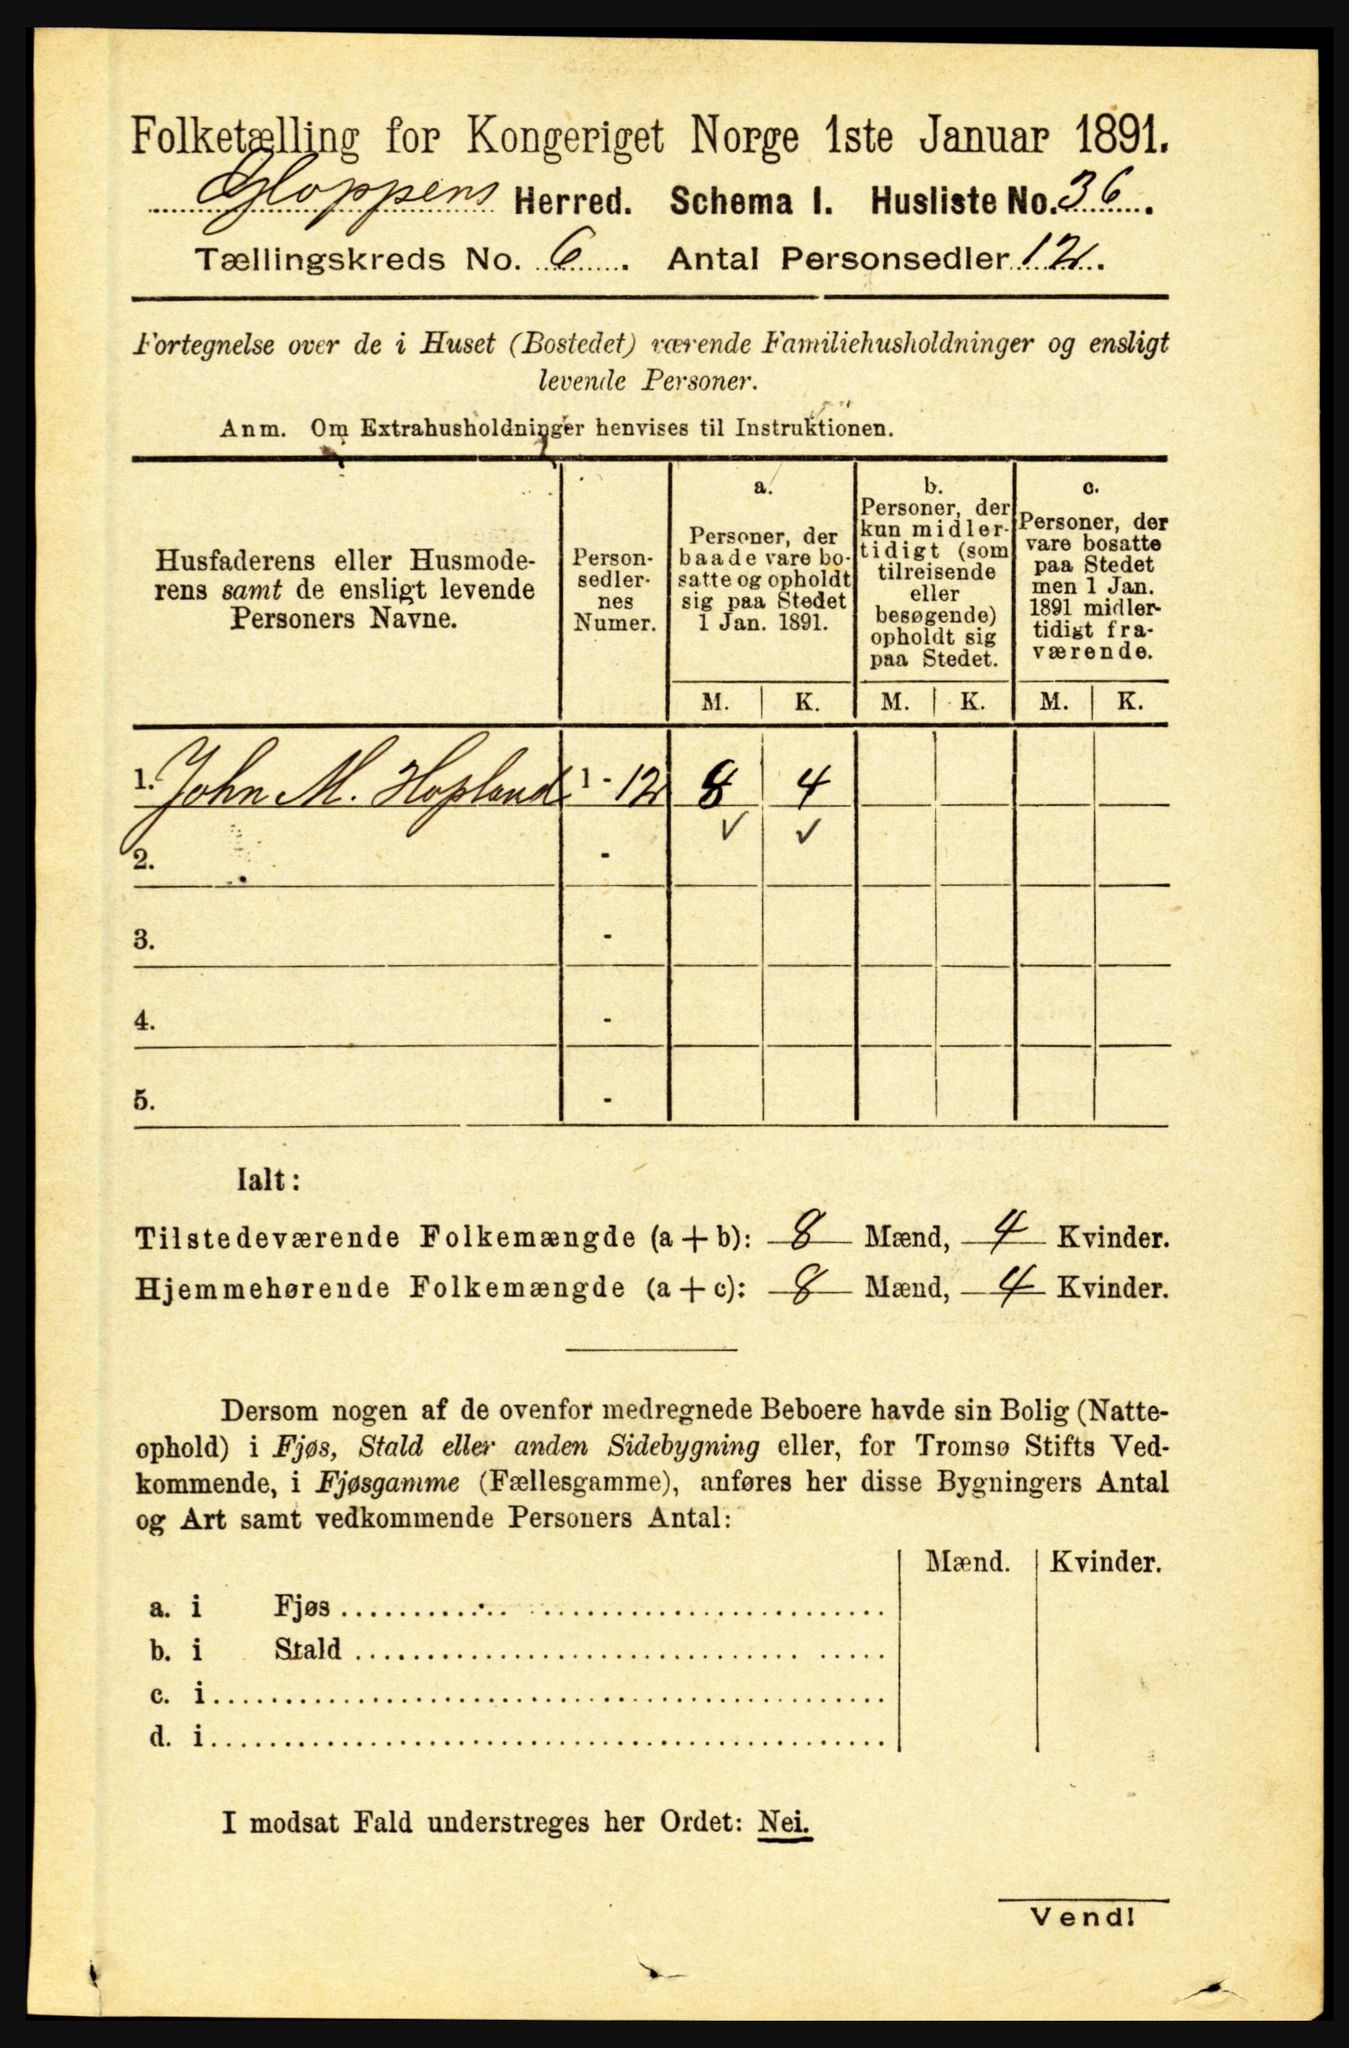 Folketælling for Kongeriget Norge 1ste Januar 1891.
Gloppens Herred. Schema I. Husliste No. 36.
Tællingskreds No. 6. Antal Personsedler 12.
Fortegnelse over de i Huset (Bostedet) værende Familiehusholdninger og ensligt
levende Personer.
Anm. Om Extrahusholdninger henvises til Instruktionen.
Husfaderens eller Husmode-
rens samt de ensligt levende
Personers Navne.
Person-
sedler-
nes
Numer.
a.
Personer, der
baade vare bo-
satte og opholdt
sig paa Stedet
1 Jan. 1891.
b.
Personer, der
kun midler-
tidigt (som
tilreisende
eller
besøgende)
opholdt sig
paa Stedet.
c.
Personer, der
vare bosatte
paa Stedet
men 1 Jan.
1891 midler-
tidigt fra-
værende.
M. K. M. K. M. K.
1. John M. Hopland 1 - 12 8 4
✓ ✓
2. -
3. -
4. -
5. -
Ialt:
Tilstedeværende Folkemængde (a + b): 8 Mænd, 4 Kvinder.
Hjemmehørende Folkemængde (a + c): 8 Mænd, 4 Kvinder.
Dersom nogen af de ovenfor medregnede Beboere havde sin Bolig (Natte-
ophold) i Fjøs, Stald eller anden Sidebygning eller, for Tromsø Stifts Ved-
kommende, i Fjøsgamme (Fællesgamme), anføres her disse Bygningers Antal
og Art samt vedkommende Personers Antal:
Mænd. Kvinder.
a. i Fjøs
b. i Stald
c. i
d. i
I modsat Fald understreges her Ordet: Nei.
Vend!